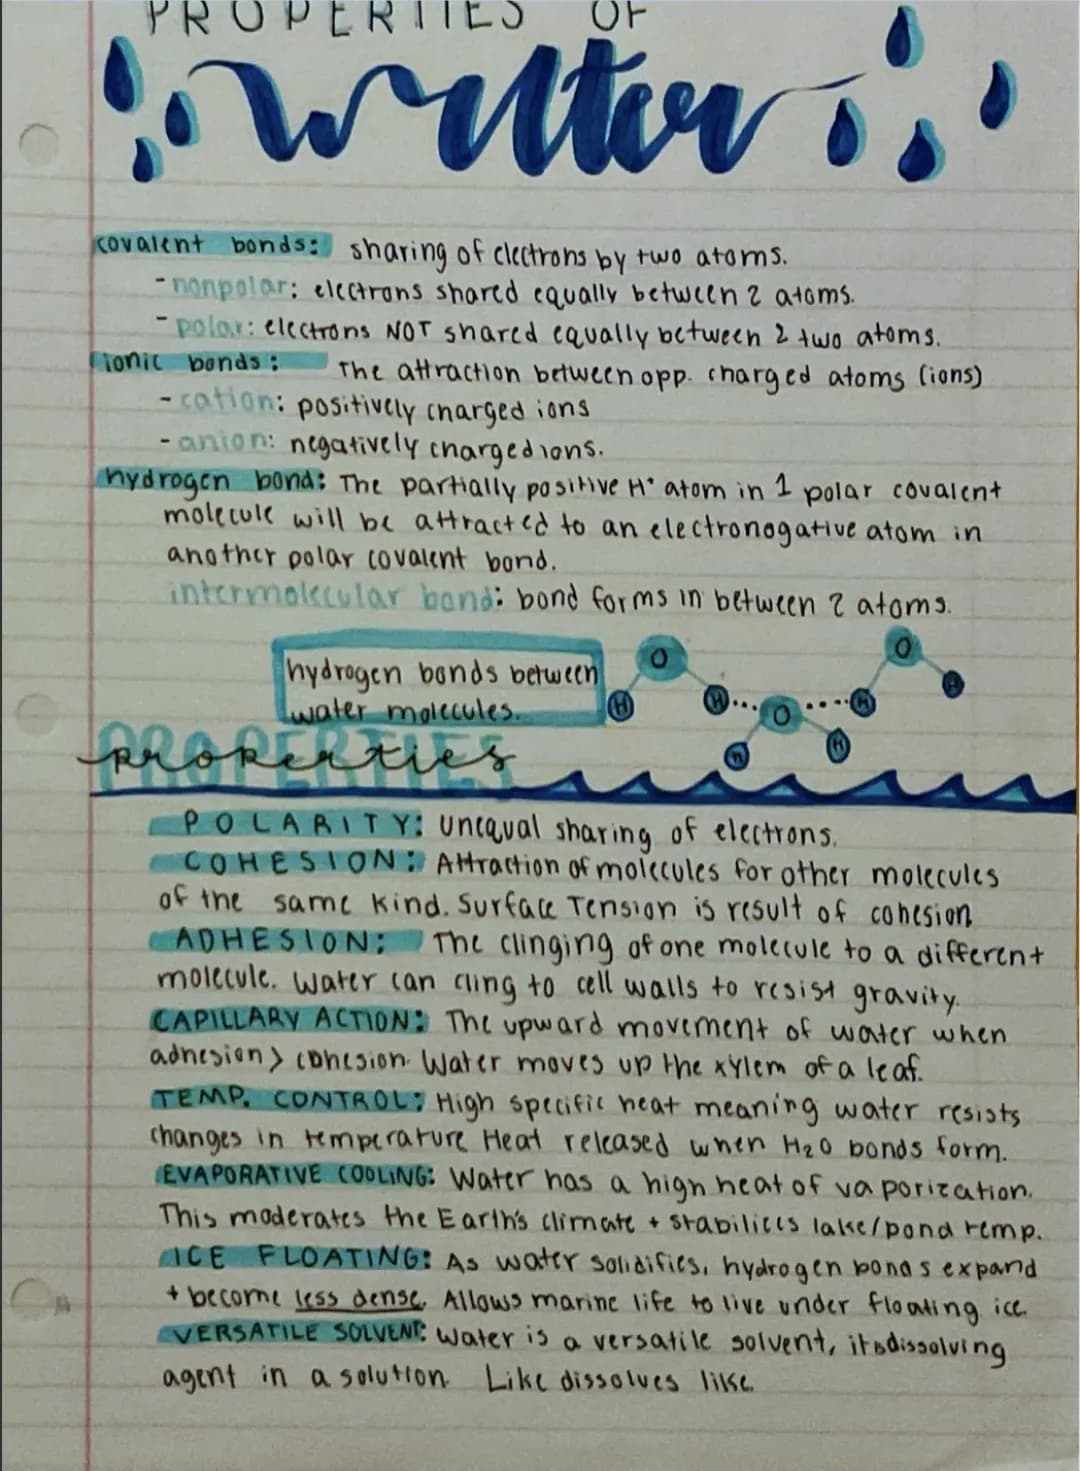 PROPERTIES OF
water
covalent bonds: sharing of electrons by two atoms.
- nonpolar: electrons shared equally between 2 atoms.
- polar: electrons NOT shared equally between 2 two atoms.
ionic bonds: The attraction between opp. charged atoms (ions)
- cation: positively charged ions
- anion: negatively charged ions.
hydrogen bond: The partially positive H⁺ atom in 1 polar covalent
molecule will be attracted to an electronogative atom in
another polar covalent bond.
intermolecular bond: bond forms in between 2 atoms.
hydrogen bonds between
water molecules.
O
H
H
O
H
H
O
H
H
PROPERTIES
properties
POLARITY: Unequal sharing of electrons.
COHESION: Attraction of molecules for other molecules
of the same kind. Surface Tension is result of cohesion
ADHESION: The clinging of one molecule to a different
molecule. Water can cling to cell walls to resist gravity.
CAPILLARY ACTION: The upward movement of water when
adhesion > cohesion. Water moves up the xylem of a leaf.
TEMP. CONTROL: High specific heat meaning water resists
changes in temperature Heat released when H₂O bonds form.
EVAPORATIVE COOLING: Water has a high heat of vaporization.
This moderates the Earth's climate + stabilices lake/pond temp.
ICE FLOATING: As water solidifies, hydrogen bonds expand
+ become less dense. Allows marine life to live under floating ice.
VERSATILE SOLVENT: Water is a versatile solvent, its dissolving
agent in a solution. Like dissolves like.